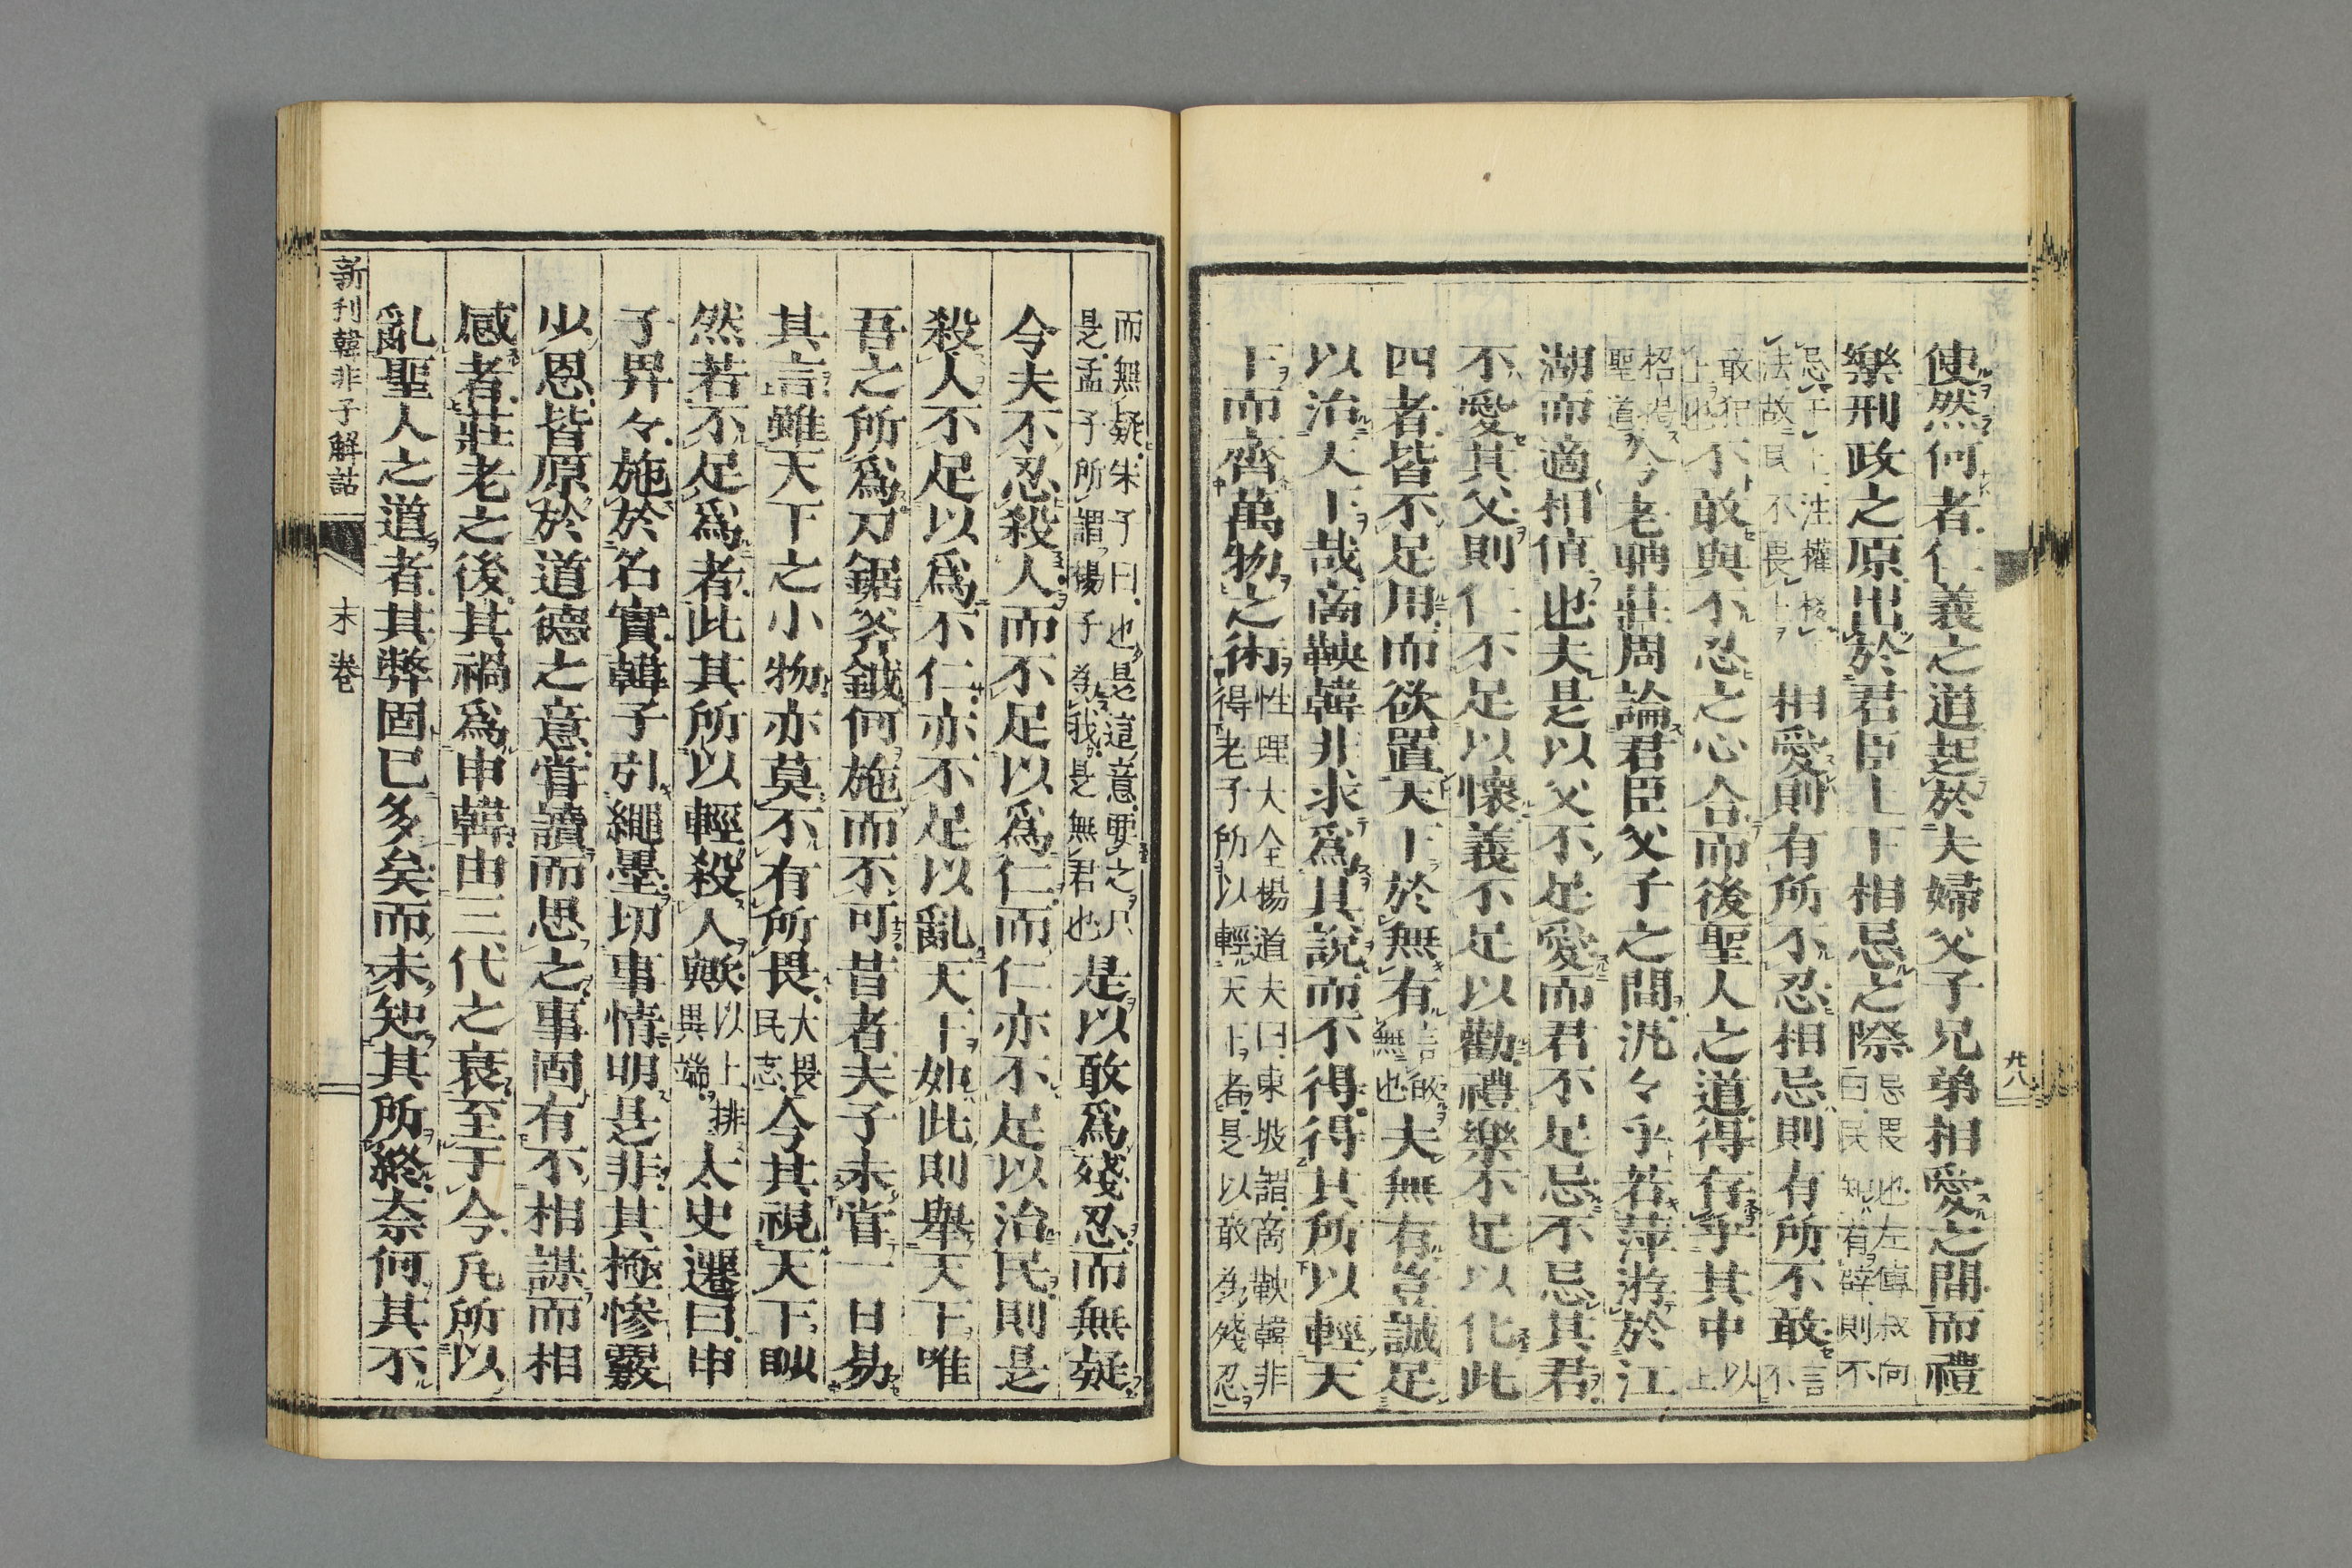 使然何者仁義之道起於夫婦父子兄弟相愛之間而禮
樂刑政之原出於君臣上下相忌之際忌畏也左傳叔向曰民知有辟則不
忌于上注權移法故民不畏上相愛則有所不忍相忌則有所不敢言不
敢犯上也不敢與不忍之心合而後聖人之道得存乎其中以上
招揚聖道今老聃莊周論君臣父子之間汎々乎若萍游於江
湖而適相値也夫是以父不足愛而君不足忌不忌其君
不愛其父則仁不足以懷義不足以勸禮樂不足以化此
四者皆不足用而欲置天下於無有言放無也夫無有豈誠足
以治人下哉商鞅韓非求爲其說而不得得其所以輕天
下而齊萬物之術性理大全楊道夫曰東坡謂商鞅韓非得老子所以輕天下者是以敢爲殘忍
九八
而無疑朱子曰也是這意要之只是孟子所謂楊子爲我是無君也是以敢爲殘忍而無疑
今夫不忍殺人而不足以爲仁而仁亦不足以治民則是
殺人不足以爲不仁亦不足以亂天下如此則舉天下唯
吾之所爲刀鋸斧鉞何施而不可昔者夫子未嘗一日易
其言雖天下之小物亦莫不有所畏大畏民志今其視天下眇
然若不足爲者此其所以輕殺人歟與以上排異端太史遷曰申
子畀々施於名實韓子引繩墨切事情明是非其極慘覈
少恩皆原於道德之意嘗讀而思之事固有不相謀而相
感者莊老之後其禍爲申韓由三代之衰至于今凡所以
亂聖人之道者其弊固已多矣而未知其所終奈何其不
新刊韓非子解詁 末卷